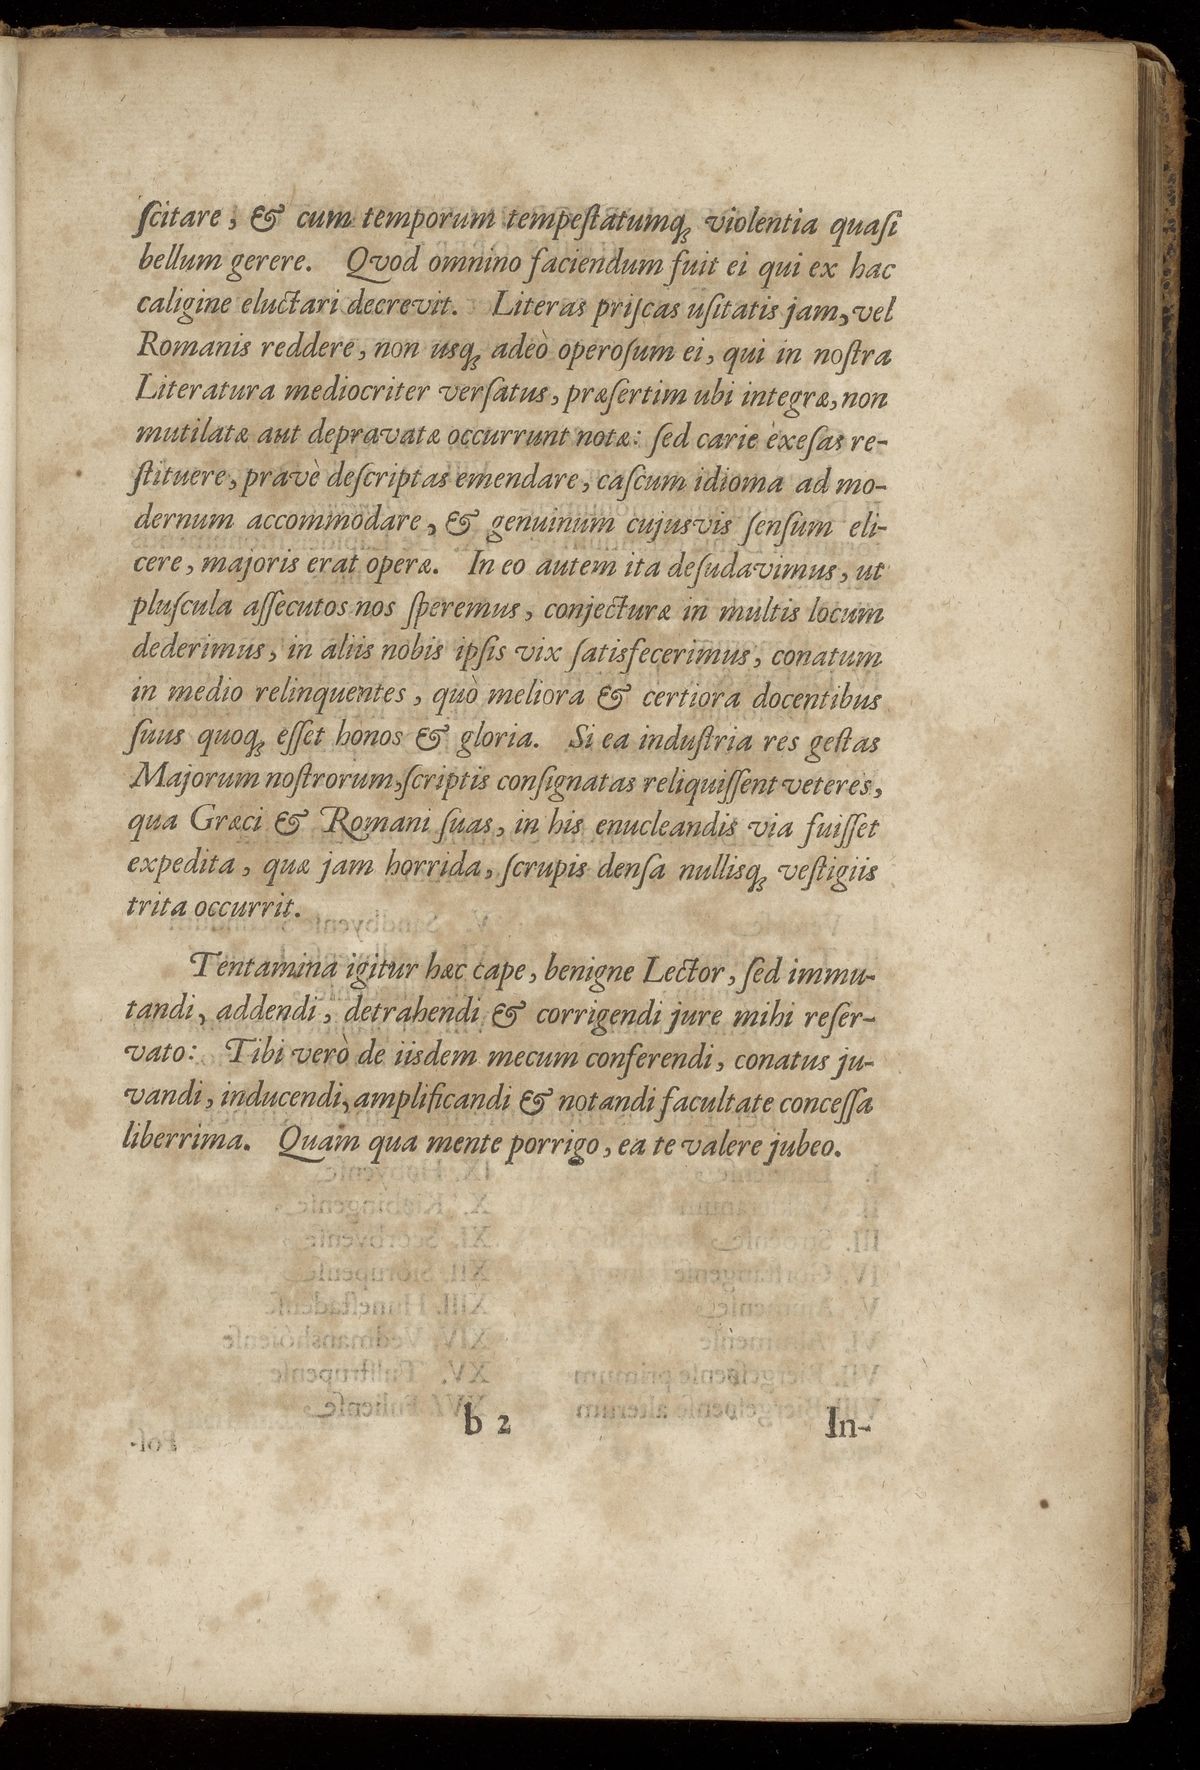 ſcitare, & cum temporum tempeſtatumq́ꝫ violentia quaſi
bellum gerere. Qvod omnino faciendum fuit ei qui ex hac
caligine eluctari decrevit. Literas priſcas uſitatis jam, vel
Romanis reddere, non usqꝫ adeò operoſum ei, qui in noſtra
Literatura mediocriter verſatus, præſertim ubi integræ, non
mutilatæ aut depravatæ occurrunt notæ: ſed carie èxeſas re-
ſtituere, pravè deſcriptas emendare, caſcum idioma ad mo-
dernum accommodare, & genuinum cujusvis ſenſum eli-
cere, majoris erat operæ. In eo autem ita deſudavimus, ut
pluſcula aſſecutos nos ſperemus, conjecturæ in multis locum
dederimus, in aliis nobis ipſis vix ſatisfecerimus, conatum
in medio relinquentes, quò meliora & certiora docentibus
ſuus quoqꝫ eſſet honos & gloria. Si ea induſtria res geſtas
Majorum noſtrorum, ſcriptis conſignatas reliquiſſent veteres,
qua Græci & Romani ſuas, in his enucleandis via fuiſſet
expedita, quæ jam horrida, ſcrupis denſa nullisqꝫ veſtigiis
trita occurrit.
Tentamina igitur hæc cape, benigne Lector, ſed immu-
tandi, addendi, detrahendi & corrigendi jure mihi reſer-
vato: Tibi verò de iisdem mecum conferendi, conatus ju-
vandi, inducendi, amplificandi & notandi facultate conceſſa
liberrima. Quam qua mente porrigo, ea te valere jubeo.
b 2 In-